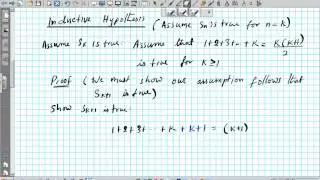 Inductive Hypothesis (Assume Sn is true for n=k)
Assume Sk is true. Assume that 1+2+3+…+k = k(k+1)/2
is true for k≥1
Proof (We must show our assumption follows that
Sk+1 is true)
Show Sk+1 is true
1+2+3+…+k+k+1 = (k+1)